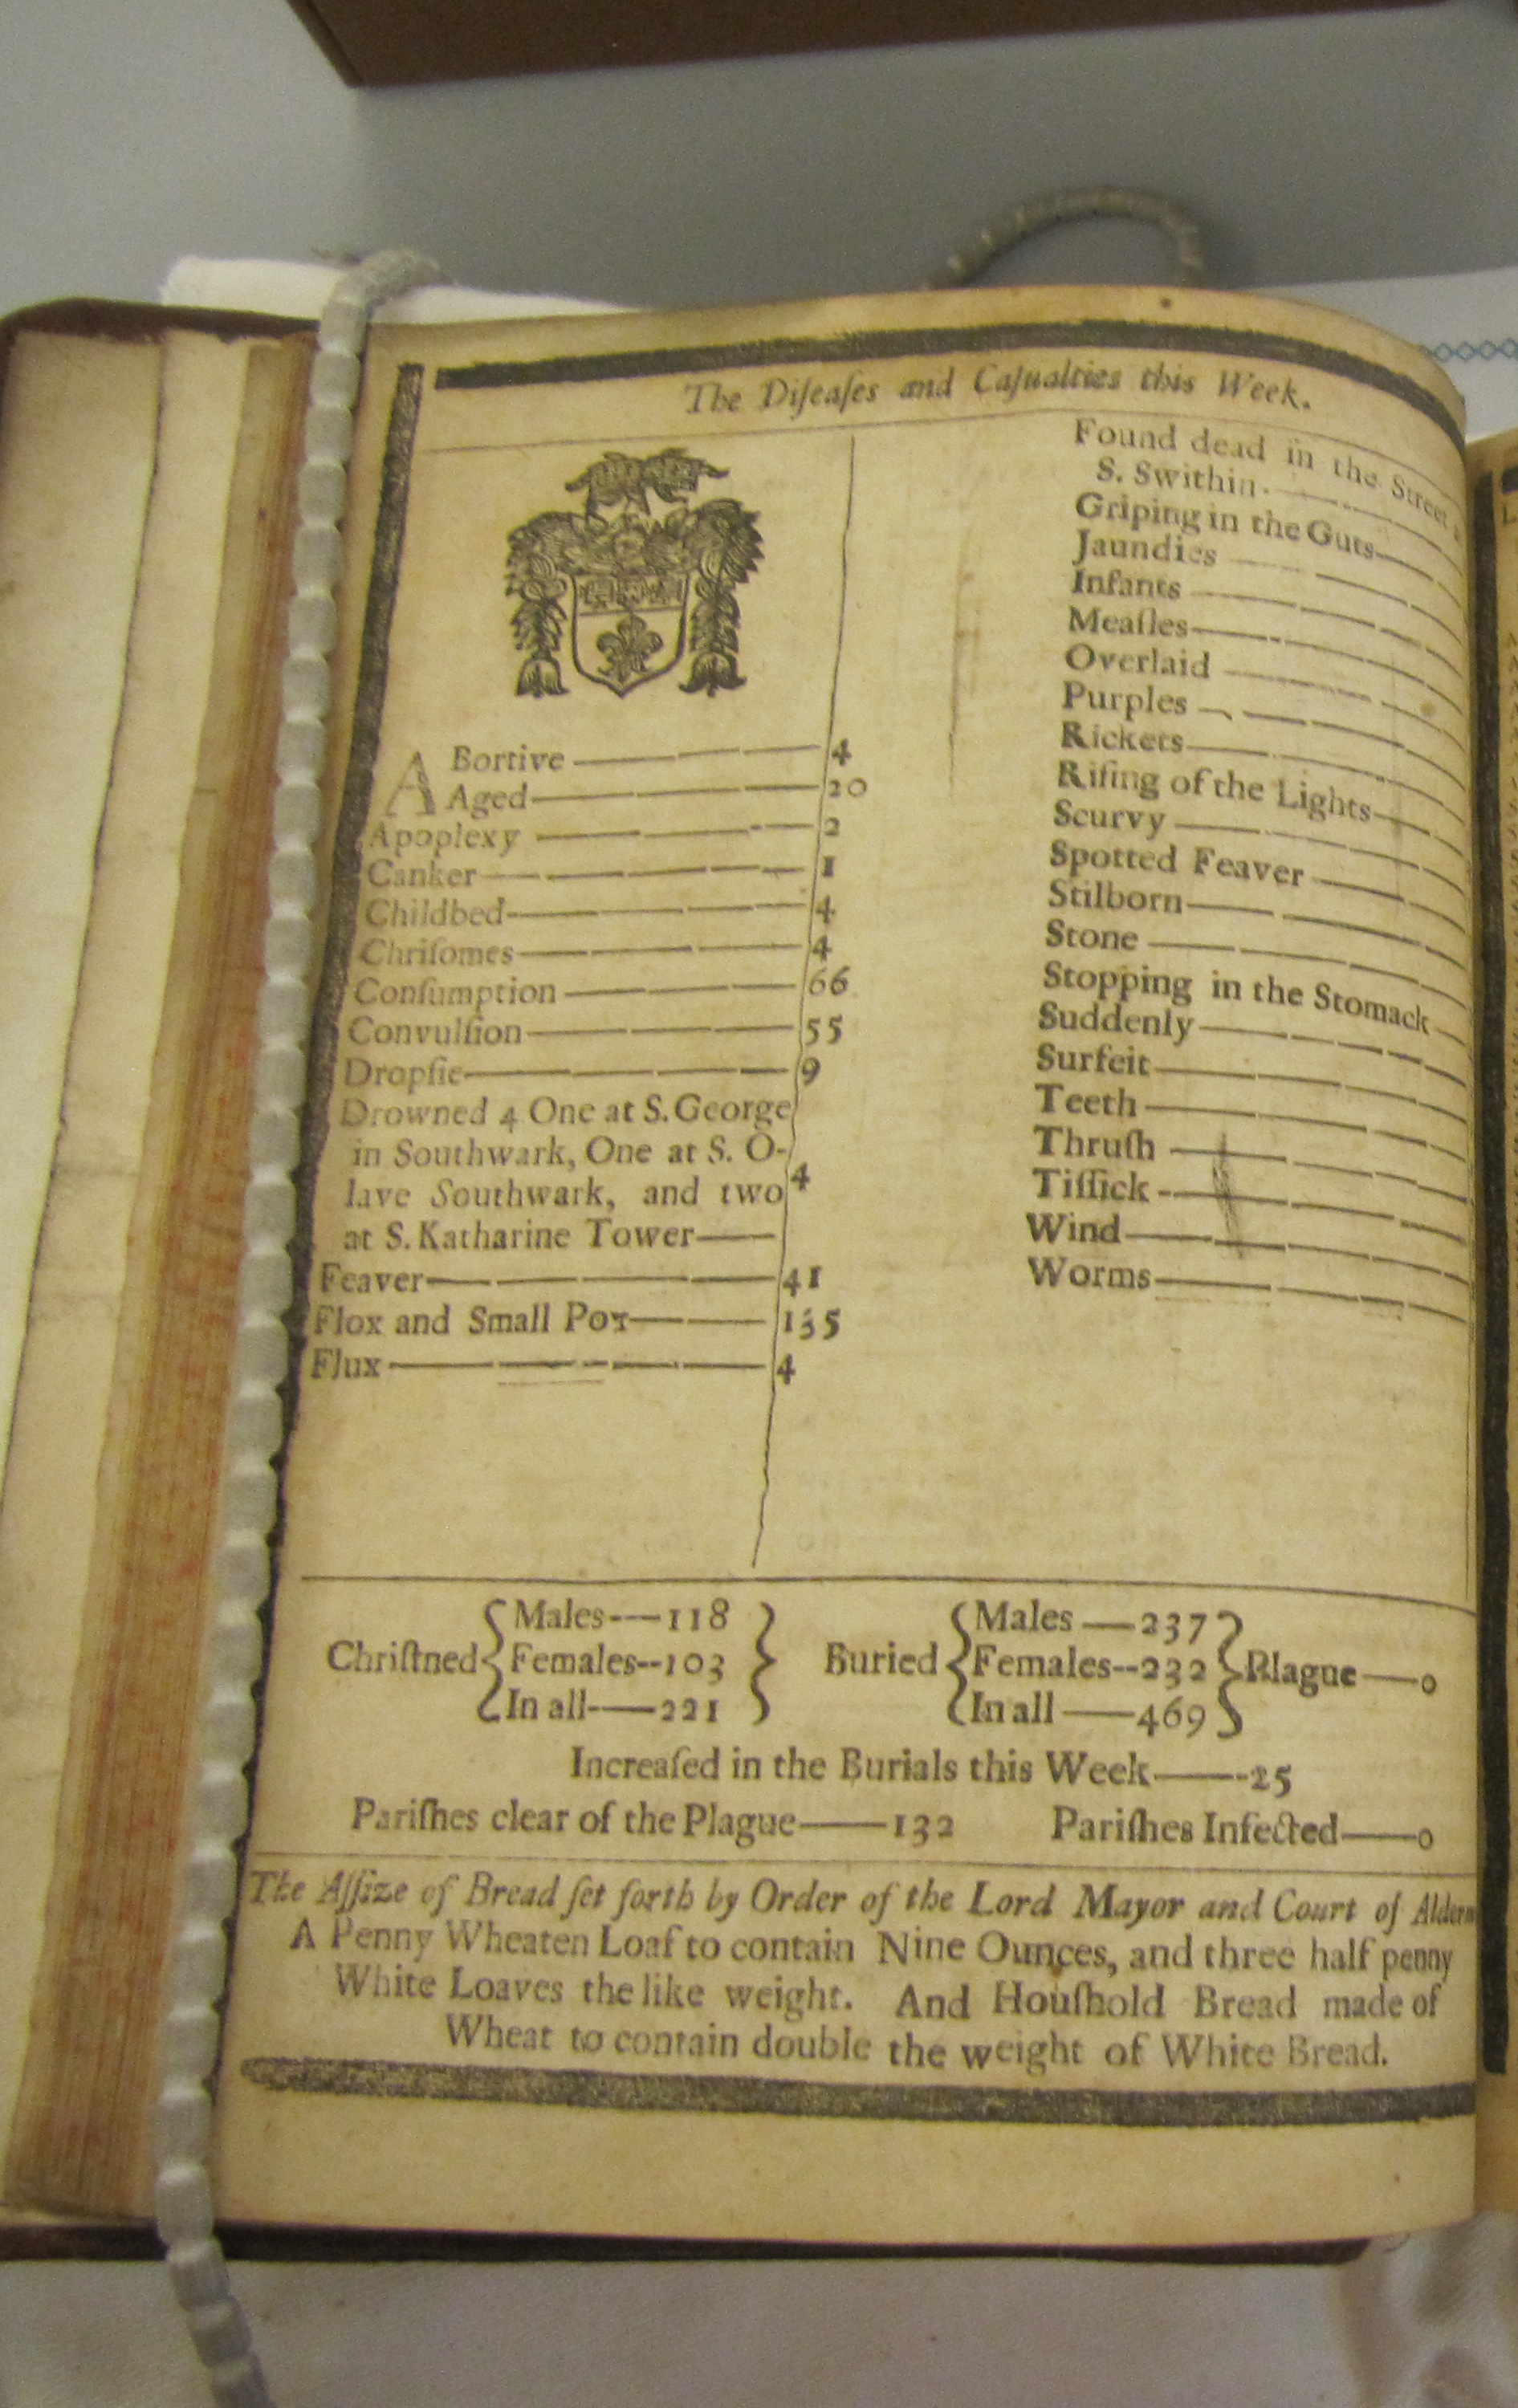 The Diſeaſes and Caſualties this Week.
ABortive — 4
Aged — 20
Apoplexy — 2
Canker — 1
Childbed — 4
Chriſomes — 4
Conſumption — 66
Convulſion — 55
Dropſie — 9
Drowned 4 One at S. George
in Southwark, One at S. O-
lave Southwark, and two
at S. Katharine Tower — 4
Feaver — 41
Flox and Small Pox — 135
Flux — 4
Found dead in the Street
S. Swithin
Griping in the Guts
Jaundies
Infants
Meaſles
Overlaid
Purples
Rickets
Riſing of the Lights
Scurvy
Spotted Feaver
Stilborn
Stone
Stopping in the Stomack
Suddenly
Surfeit
Teeth
Thruſh
Tiſſick
Wind
Worms
Chriſtned { Males — 118
Females — 103
In all — 221 }
Buried { Males — 237
Females — 232
In all — 469 } Plague — 0
Increaſed in the Burials this Week — 25
Pariſhes clear of the Plague — 132 Pariſhes Infected — 0
The Aſſize of Bread ſet forth by Order of the Lord Mayor and Court of
A Penny Wheaten Loaf to contain Nine Ounces, and three half penny
White Loaves the like weight. And Houſhold Bread made of
Wheat to contain double the weight of White Bread.